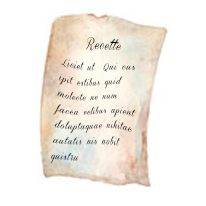 Recette
Licict ut Qui eus
spit estibus quid
molecto ne num
facea velibus apient
doluptaquae nihitae
autatis nis nobit
quistru